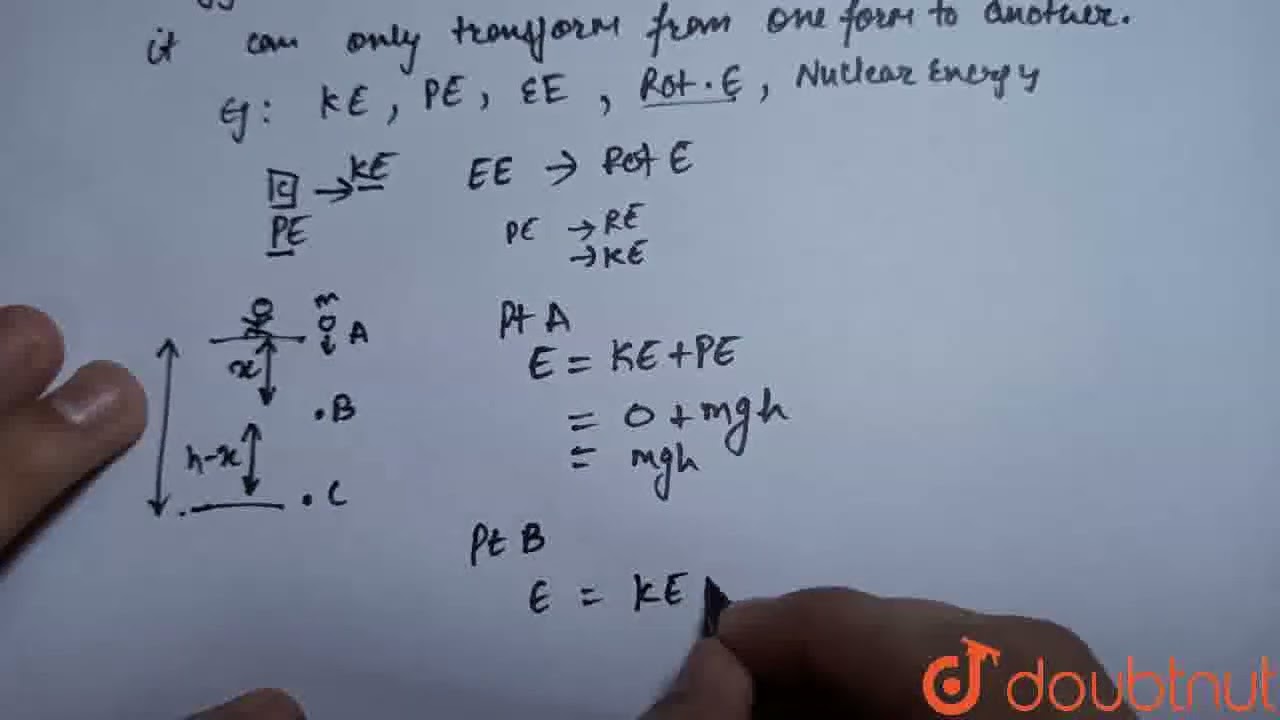 it can only transform from one form to another.
Eg: KE, PE, EE, Rot. E, Nuclear Energy
C → KE
PE
EE → Rot E
PE → RE
→ KE
m
A
x
B
h-x
C
Pt A
E = KE + PE
= 0 + mgh
= mgh
Pt B
E = KE
doubtnut